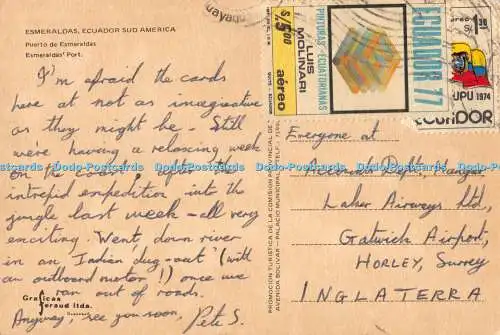 ESMERALDAS, ECUADOR SUD AMERICA
Puerto de Esmeraldas
Esmeraldas' Port.
I'm afraid the cards
here at not as imaginative
as they might be. Still
were having a relaxing week
on the after the
intrepid expedition into the
jungle last week - all very
exciting. Went down river
in an Indian dug-out (with
an outboard motor!!) once we
ran out of roads.
Anyway, see you soon,
Pete S.
Graficas
Feraud ltda.
PROMOCION TURISTICA DE LA COMISION PROVINCIAL DE
AVENIDA BOLIVAR PALACIO MUNICIPAL TELF.
S/. 5,00
aéreo
LUIS
MOLINARI
PINTURAS ECUATORIANAS
ECUADOR 77
aéreo
S/. 1,30
UPU 1974
ECUADOR
Everyone at
Records Dept., Hangar
Laker Airways ltd,
Gatwick Airport,
HORLEY, Surrey
INGLATERRA
Dodo-Postcards Dodo-Postcards Dodo-Postcards Dodo-Postcards Dodo-Postcards